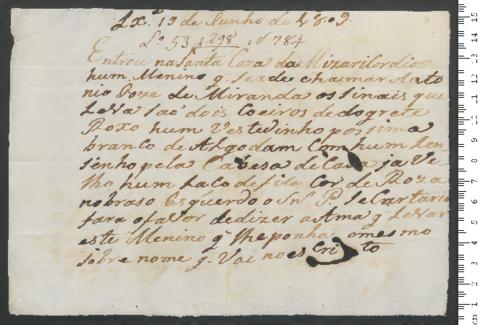 Lx.ª 19 de Junho de 1809
L.º 53 f 298 N 784
Entrou na Santa Caza da Mizarilcordia
hum Menino q. Sea de chasmar Anto
nio Joze de Miranda os sinais que
Leva saó dois Coeiros de dogrete
Roxo hum Vestedinho por sima
branco de Algodam Com hum Len
senho pela Cabesa de Caça ja Ve
lho hum Laco de fita Cor de Roza
no braso Esquerdo o Sn.r P. Secartario
fara o favor de dizer a Ama q Levar
este Menino q lhe ponha o mesmo
sobre nome q. Vai no es Cri to